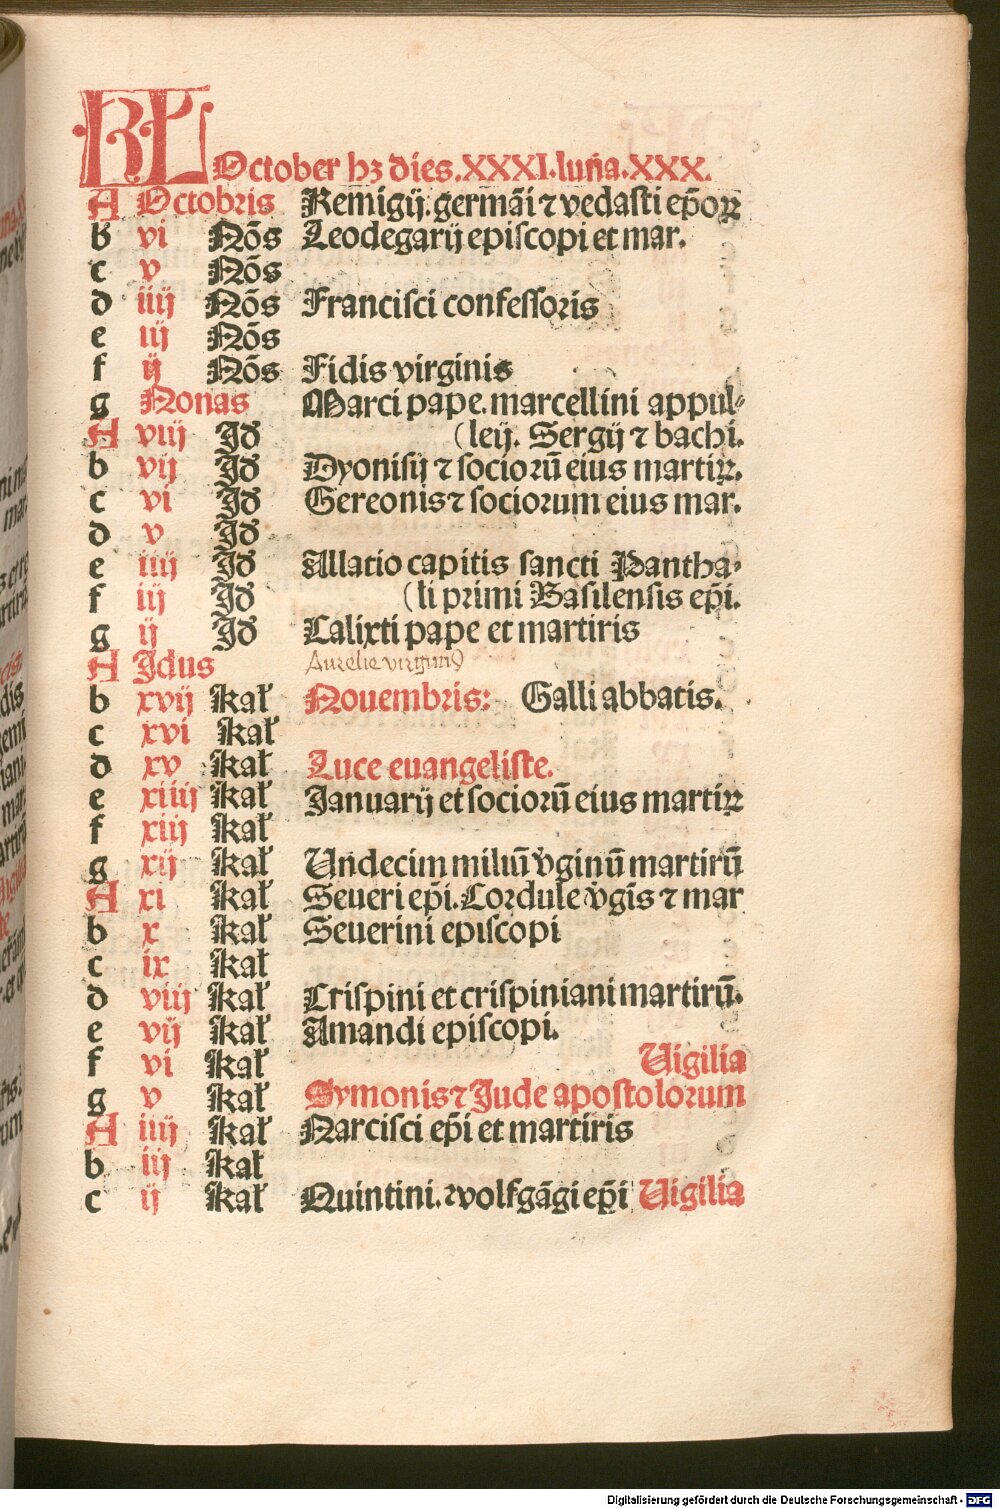 KL October hꝫ dies. XXXI. luña. XXX.
A Octobris Remigij. germāi ⁊ vedasti ep̄oꝝ
b vi Nōs Leodegarij episcopi et mar.
c v Nōs
d iiij Nōs Francisci confessoris
e iij Nōs
f ij Nōs Fidis virginis
g Nonas Marci pape. marcellini appul⸗
A viij Id (leij. Sergij ⁊ bachi.
b vij Id Dyonisij ⁊ sociorū eius martiꝝ.
c vi Id Gereonis ⁊ sociorum eius mar.
d v Id
e iiij Id Allatio capitis sancti Pantha⸗
f iij Id (li primi Basilensis ep̄i.
g ij Id Calixti pape et martiris
A Idus Aurelie virginis
b xvij kał Nouembris: Galli abbatis.
c xvi kał
d xv kał Luce euangeliste.
e xiiij kał Januarij et sociorū eius martiꝝ
f xiij kał
g xij kał Undecim miliū v̓ginū martirū
A xi kał Seueri ep̄i. Cordule v̓gīs ⁊ mar
b x kał Seuerini episcopi
c ix kał
d viij kał Crispini et crispiniani martirū.
e vij kał Amandi episcopi.
f vi kał Uigilia
g v kał Symonis ⁊ Jude apostolorum
A iiij kał Narcisci ep̄i et martiris
b iij kał
c ij kał Quintini. ⁊ wolfgāgi ep̄i Uigilia
Digitalisierung gefördert durch die Deutsche Forschungsgemeinschaft - DFG